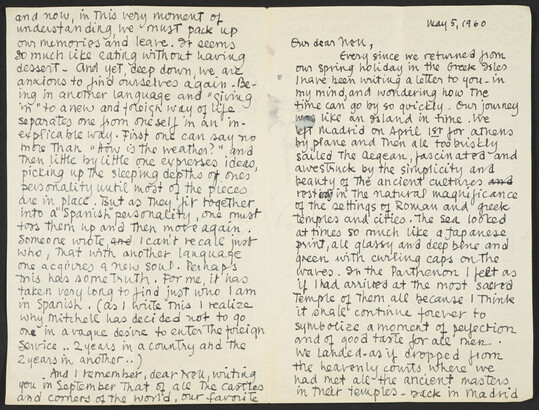 May 5, 1960
Our dear Nou,
Every since we returned from
our spring holiday in the Greek Isles
I have been writing a letter to you - in
my mind, and wondering how the
time can go by so quickly. Our journey
was like an island in time. We
left Madrid on April 1st for Athens
by plane and then all too briskly
sailed the Aegean, fascinated and
awestruck by the simplicity and
beauty of the ancient cultures and
resting in the natural magnificence
of the settings of Roman and Greek
temples and cities. The sea looked
at times so much like a Japanese
print, all glassy and deep blue and
green with curling caps on the
waves. In the Parthenon I felt as
if I had arrived at the most sacred
temple of them all because I think
it shall continue forever to
symbolize a moment of perfection
and of good taste for all men.
We landed - as if dropped from
the heavenly courts where we
had met all the ancient masters
in their temples - back in Madrid
and now, in this very moment of
understanding, we must pack up
our memories and leave. It seems
so much like eating without having
dessert - And yet, deep down, we are
anxious to find ourselves again. Be-
ing in another language and "giving
in" to a new and foreign way of life
separates one from oneself in an in-
explicable way. First one can say no
more than "How is the weather?" and
then little by little one expresses ideas,
picking up the sleeping depths of ones
personality until most of the pieces
are in place. But as they fit together
into a Spanish personality, one must
toss them up and then move again.
Someone wrote and I can't recall just
who, that with another language
one acquires a new soul. Perhaps
this has some truth. For me, it has
taken very long to find just who I am
in Spanish. (as I write this I realize
why Mitchell has decided not to go
on in a vague desire to enter the foreign
service .. 2 years in a country and the
2 years in another ..)
And I remember, dear Nou, writing
you in September that of all the castles
and corners of the world, our favorite